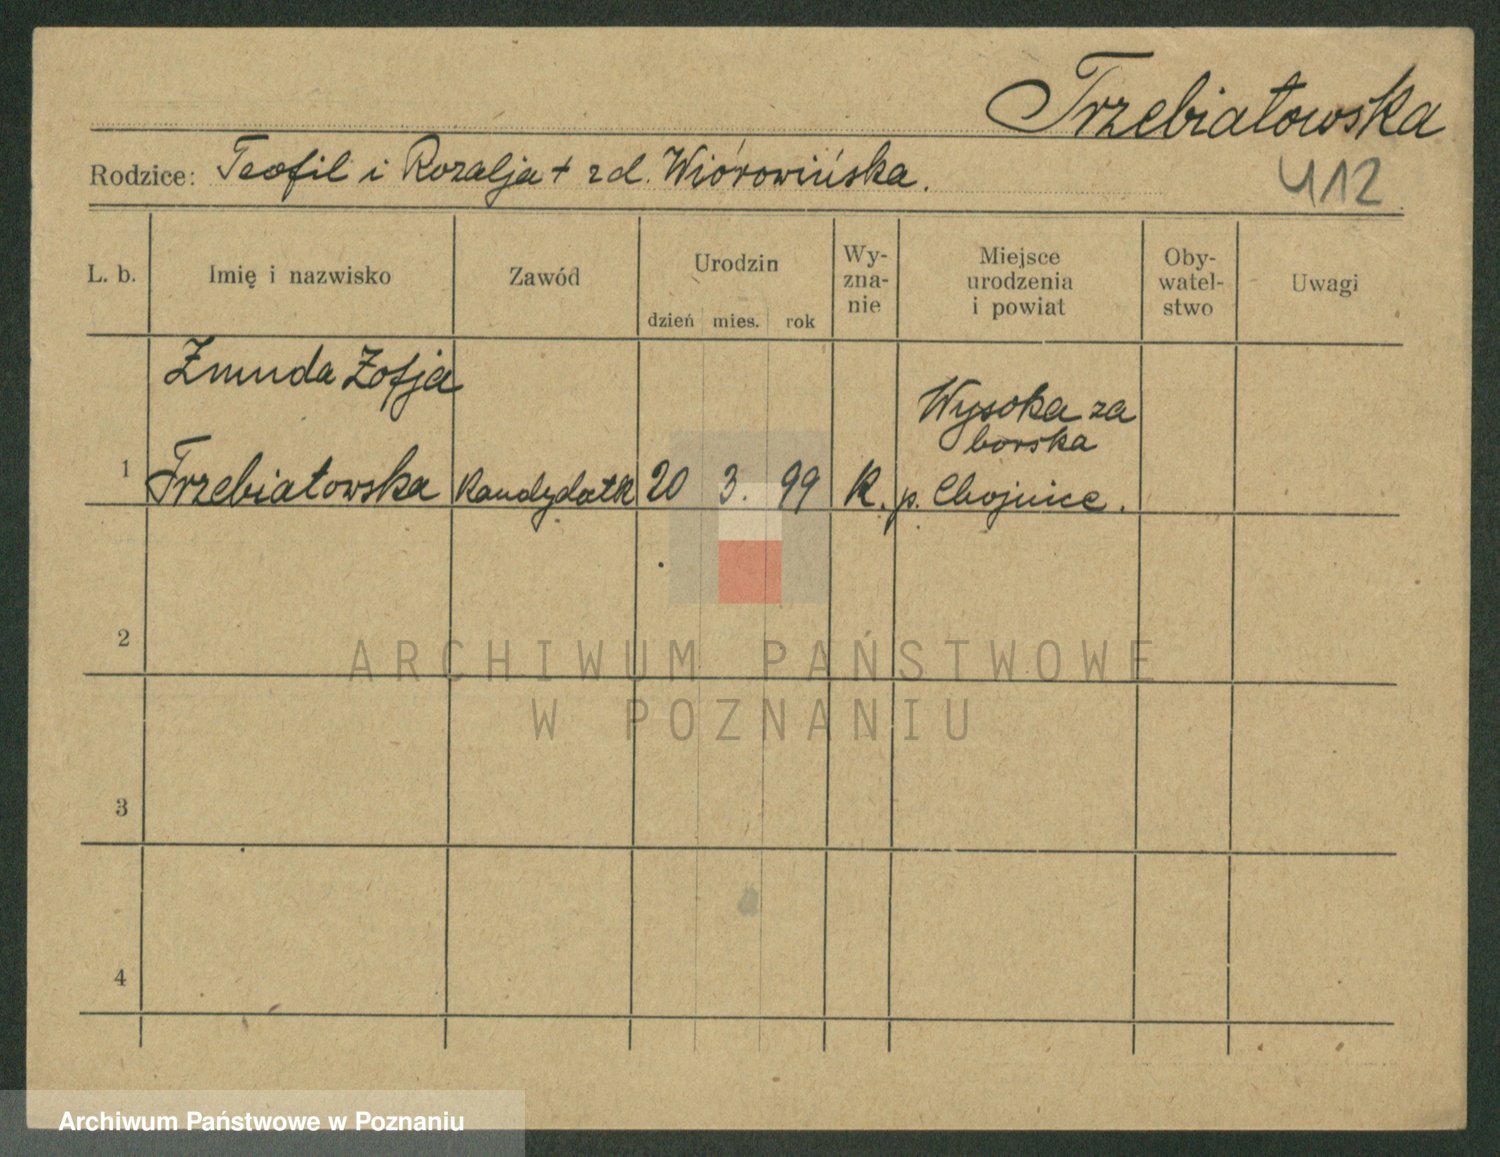 Trzebiatowska
Rodzice: Teofil i Rozalja + zd. Wiórowińska.
412
L. b.
Imię i nazwisko
Zawód
Urodzin
dzień mies. rok
Wy-
zna-
nie
Miejsce
urodzenia
i powiat
Oby-
watel-
stwo
Uwagi
Żmuda Zofja
Wysoka za
borska
1 Trzebiatowska kandydatk 20 3. 99 k. p. Chojnice.
2
3
4
ARCHIWUM PAŃSTWOWE
W POZNANIU
Archiwum Państwowe w Poznaniu